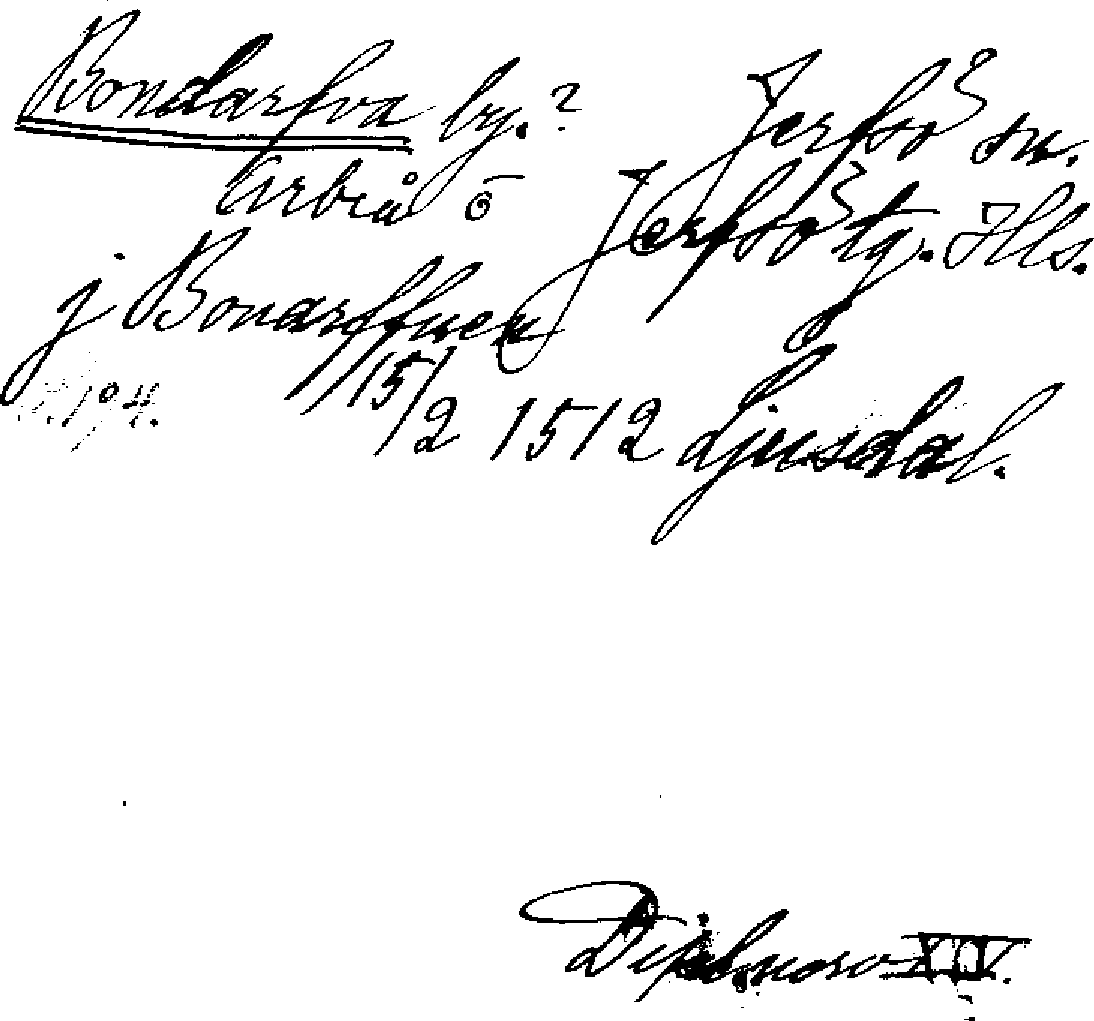 Bondarfva by.? Jerfsö sn.
Arbrå ō Jerfsö tg. Hls.
j Bonarffwen
15/2 1512 Ljusdal.
Dipl. XIV.